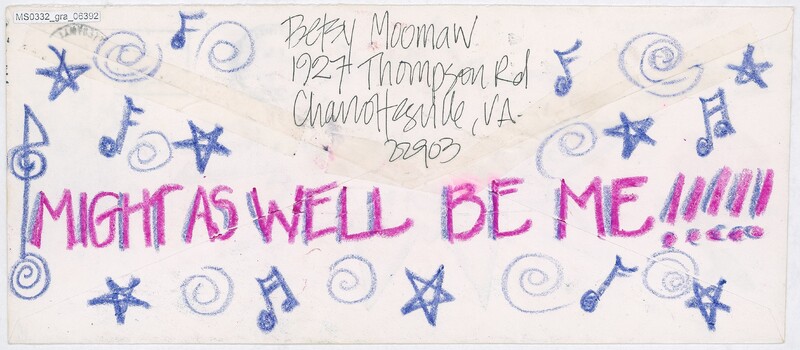 MS0332_gra_06392
Betsy Moomaw
1927 Thompson Rd
Charlottesville, VA.
22903
MIGHT AS WELL BE ME!!!!!